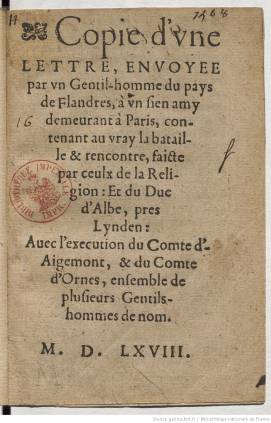 H 1568
Copie d'vne
LETTRE, ENVOYEE
par vn Gentil-homme du pays
de Flandres, à vn sien amy
demeurant à Paris, con-
16 tenant au vray la batail-
le & rencontre, faicte
par ceulx de la Reli-
gion: Et du Duc
d'Albe, pres
Lynden:
Auec l'execution du Comte d'-
Aigemont, & du Comte
d'Ornes, ensemble de
plusieurs Gentils-
hommes de nom.
M. D. LXVIII.
BIBLIOTHEQUE IMPERIALE
Source gallica.bnf.fr / Bibliothèque nationale de France